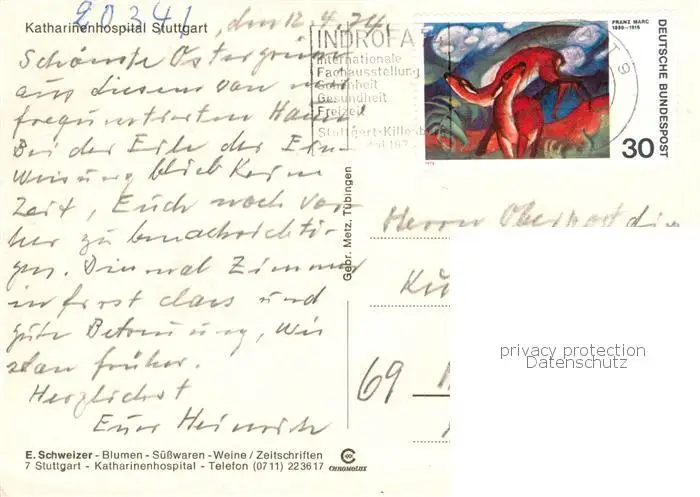 20341
Katharinenhospital Stuttgart , den 12.4.74
Schönste Ostergrüsse
aus diesem von mir
frequentierten Haus!
Bei der Eile der Ein
weisung blieb keine
Zeit, Euch noch vor
her zu benachrichti-
gen. Diesmal Zimmer
in first class und
gute Betreuung, wie
früher.
Herzlichst
Euer Heinrich
E. Schweizer - Blumen - Süßwaren - Weine / Zeitschriften
7 Stuttgart - Katharinenhospital - Telefon (0711) 223617
CHROMOLUX
Gebr. Metz, Tübingen
INDROFA
Internationale
Fachausstellung
Gesundheit
Freizeit
Stuttgart-Killesberg
FRANZ MARC
1880-1916
DEUTSCHE BUNDESPOST
30
Herrn
69
privacy protection
Datenschutz